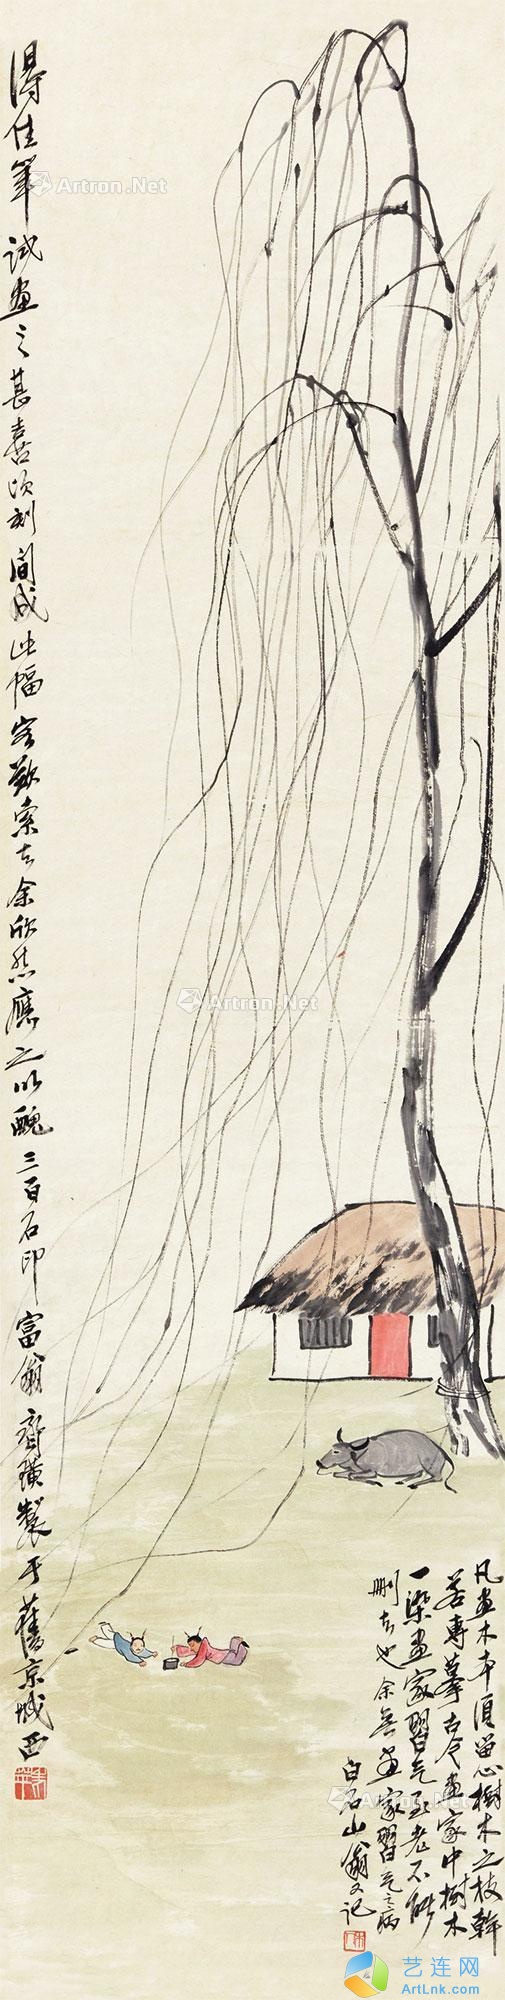 得佳筆试画之甚喜顷刻间成此幅客欲索去余欣然應之以醜三百石印富翁齊璜製于舊京城西
凡画木本須留心樹木之枝幹
若專摹古今画家中樹木
一染画家習气至老不能
删去也余無画家習气之病
白石山翁又记
Artron.Net
Artron.Net
Artron.Net
艺连网
ArtLnk.com